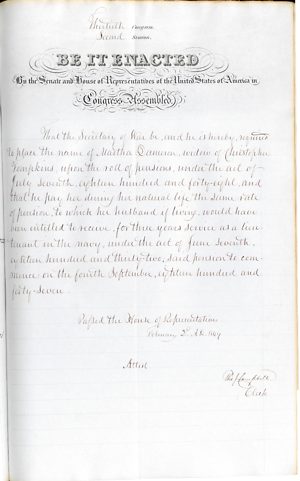 Thirtieth Congress
Second Session,
BE IT ENACTED
By the Senate and House of Representatives of the United States of America in
Congress Assembled,
That the Secretary of War be, and he is hereby, required
to place the name of Martha Dameron, widow of Christopher
Tompkins, upon the roll of pensions, under the act of
July seventh, eighteen hundred and forty-eight, and
that he pay her during her natural life the same rate
of pension, to which her husband if living, would have
been entitled to receive, for three years service as a lieu
tenant in the navy, under the act of June seventh,
eighteen hundred and thirty-two, said pension to com
mence on the fourth September, eighteen hundred and
forty-seven.
Passed the House of Representatives
February 2d 1849
Attest
Clerk